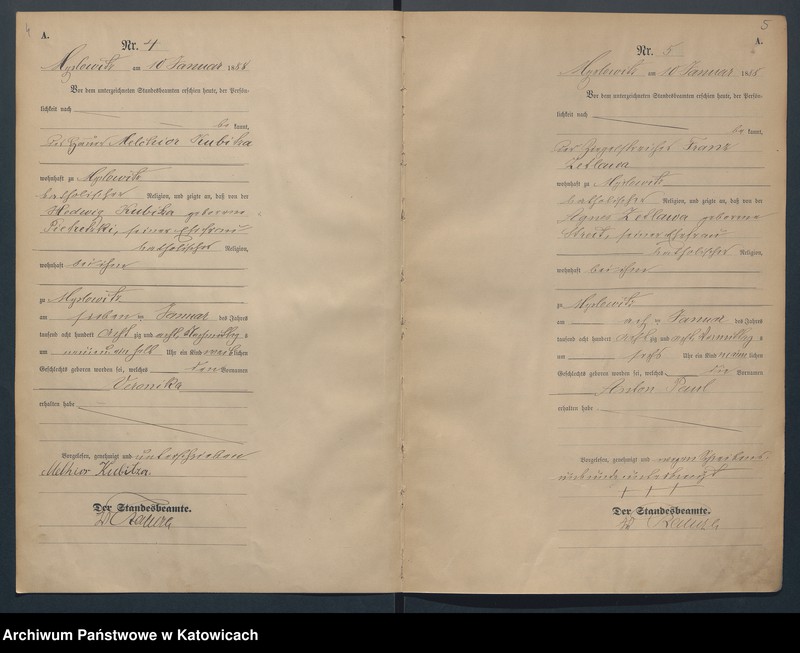 4
A.
Nr. 4
Myslowitz am 10 Januar 1888
Vor dem unterzeichneten Standesbeamten erschien heute, der Persön-
lichkeit nach
be kannt,
der Häuer Melchior Kubitza
wohnhaft zu Myslowitz
katholischer Religion, und zeigte an, daß von der
Hedwig Kubitza geborene
seiner Ehefrau
katholischer Religion,
wohnhaft bei ihm
zu Myslowitz
am sieben ten Januar des Jahres
tausend acht hundert acht zig und acht, Nachmittag s
um neun ein halb Uhr ein Kind weib lichen
Geschlechts geboren worden sei, welches den Vornamen
Veronika
erhalten habe
Vorgelesen, genehmigt und unterschrieben
Melhior Kubitza
Der Standesbeamte.
5
A.
Nr. 5
Myslowitz am 10 Januar 1888
Vor dem unterzeichneten Standesbeamten erschien heute, der Persön-
lichkeit nach
be kannt,
der Franz
wohnhaft zu Myslowitz
katholischer Religion, und zeigte an, daß von der
Agnes geborene
seiner Ehefrau
katholischer Religion,
wohnhaft bei ihm
zu Myslowitz
am acht ten Januar des Jahres
tausend acht hundert acht zig und acht, Vormittag s
um sechs Uhr ein Kind männ lichen
Geschlechts geboren worden sei, welches die Vornamen
Anton Paul
erhalten habe
Vorgelesen, genehmigt und wegen Schreibens-
unkunde unterkreuzt
+ + +
Der Standesbeamte.
Archiwum Państwowe w Katowicach